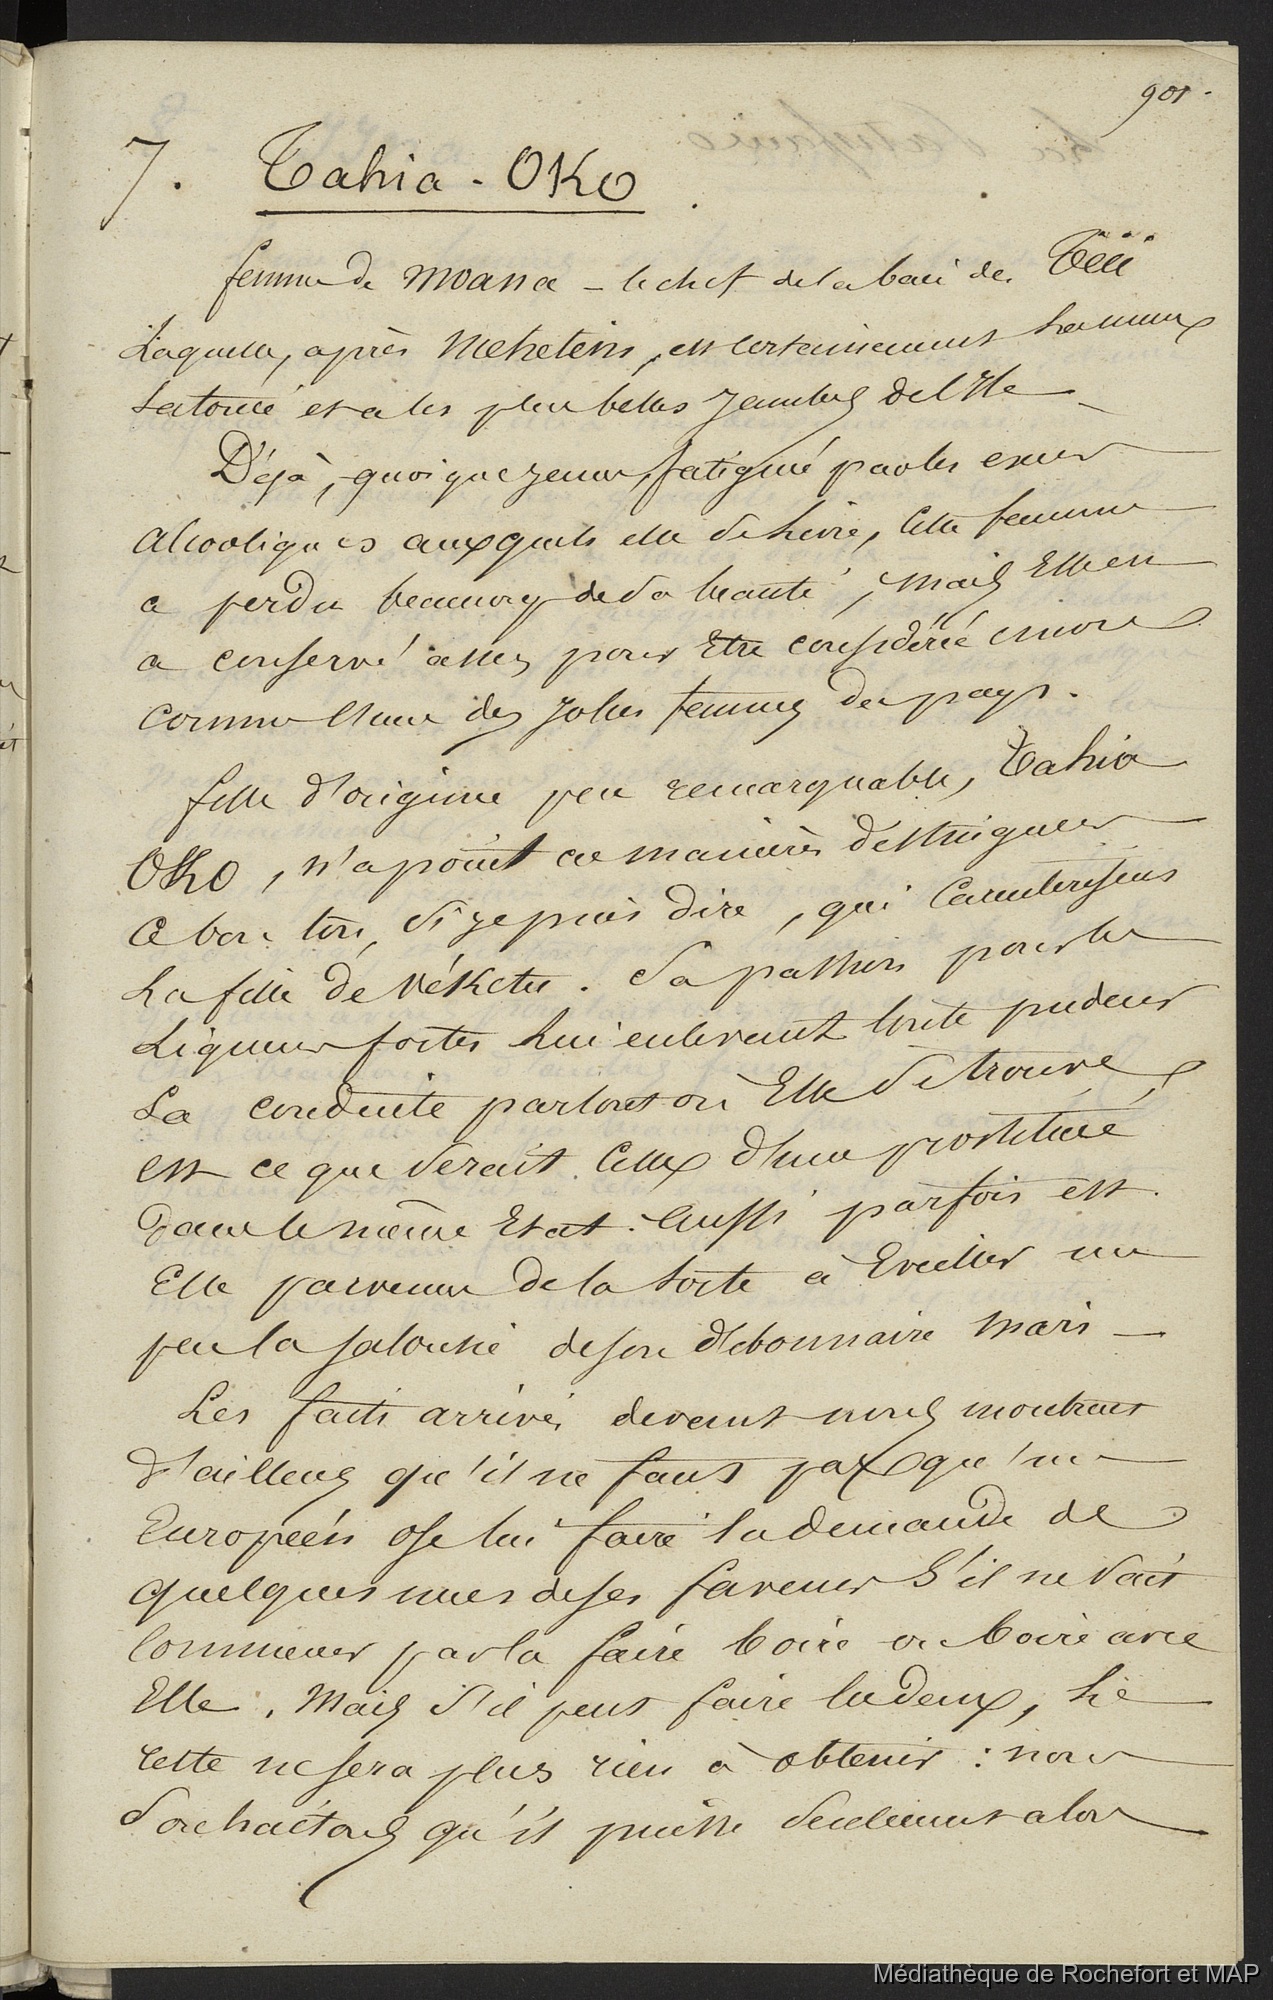 901.
7. Tahia-OKO.
femme de Moana - le chef de la baie de
Laquelle, après Mehetens, est certainement la mieux
tatouée et a les plus belles jambes de l'Ile
Déjà, quoique jeune, fatiguée par les excès
alcooliques auxquels elle se livre, cette femme
a perdu beaucoup de sa beauté, mais Elle en
a conservé assez pour Etre considérée encore
comme l'une des jolies femmes du pays.
fille d'origine peu remarquable, Tahia
OKO, n'a point ce manières distinguées
ce bon ton, si je puis dire, qui caractérisent
la fille de Vékétu. Sa passion pour les
Liqueurs fortes lui enlevant toute pudeur
La conduite partout où Elle se trouve,
est ce que serait celle d'une prostituée
dans le même Etat. Aussi parfois est
Elle parvenue de la sorte à Eveiller un
peu la jalousie de son débonnaire mari -
Les faits arrivés devant nous montrent
d'ailleurs qu'il ne faut pas qu'un
Européen ose lui faire la demande de
quelques unes de ses faveurs s'il ne sait
commencer par la faire boire ou boire avec
Elle. Mais s'il peut faire les deux, le
reste ne sera plus rien à obtenir : nous
souhaitons qu'il puisse seulement alors
Médiathèque de Rochefort et MAP